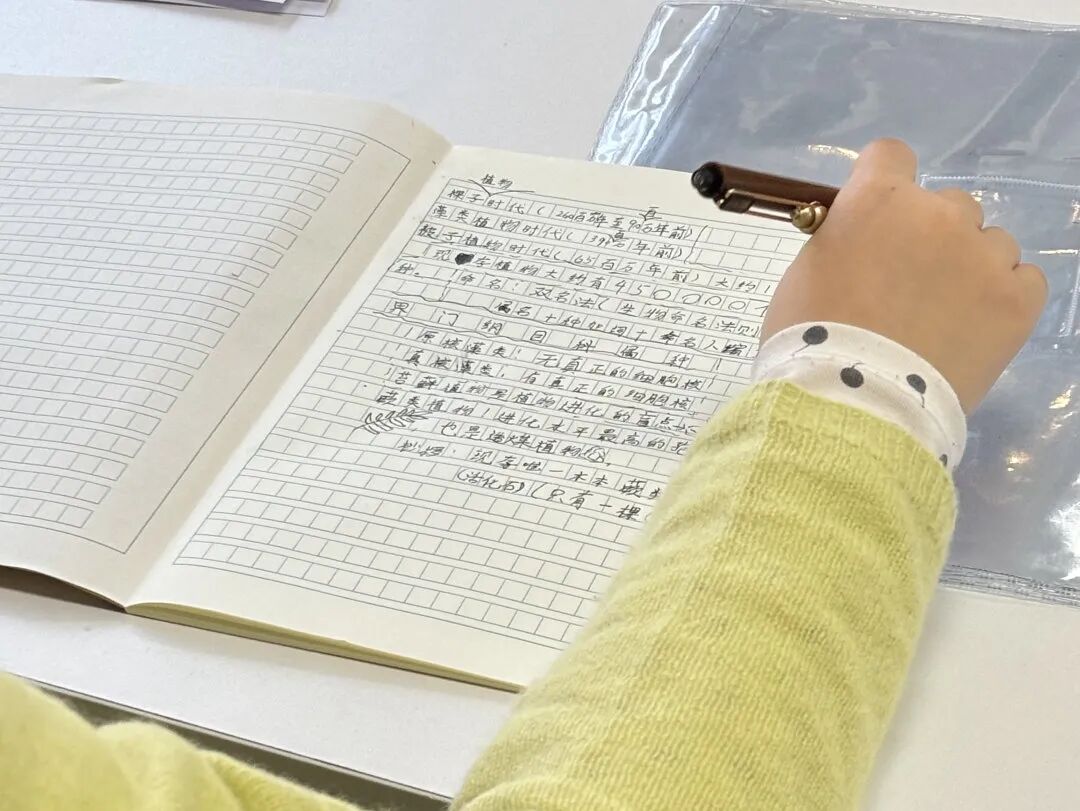 植物
裸子时代(260百万年至90百万年前)
藻类植物时代(39百年前)
被子植物时代(65百万年前)大约1
现 存植物大约有450000
种。命名:双名法(生物命名法则
属名+种加词+命名人
界门纲目科属种
原核藻类:无真正的细胞核
真核藻类:有真正的细胞核
苔藓植物是植物进化的盲点
蕨类植物!进化水平最高的孢
也是造煤植物
桫椤:现存唯一木本蕨
(活化石)(只有十棵